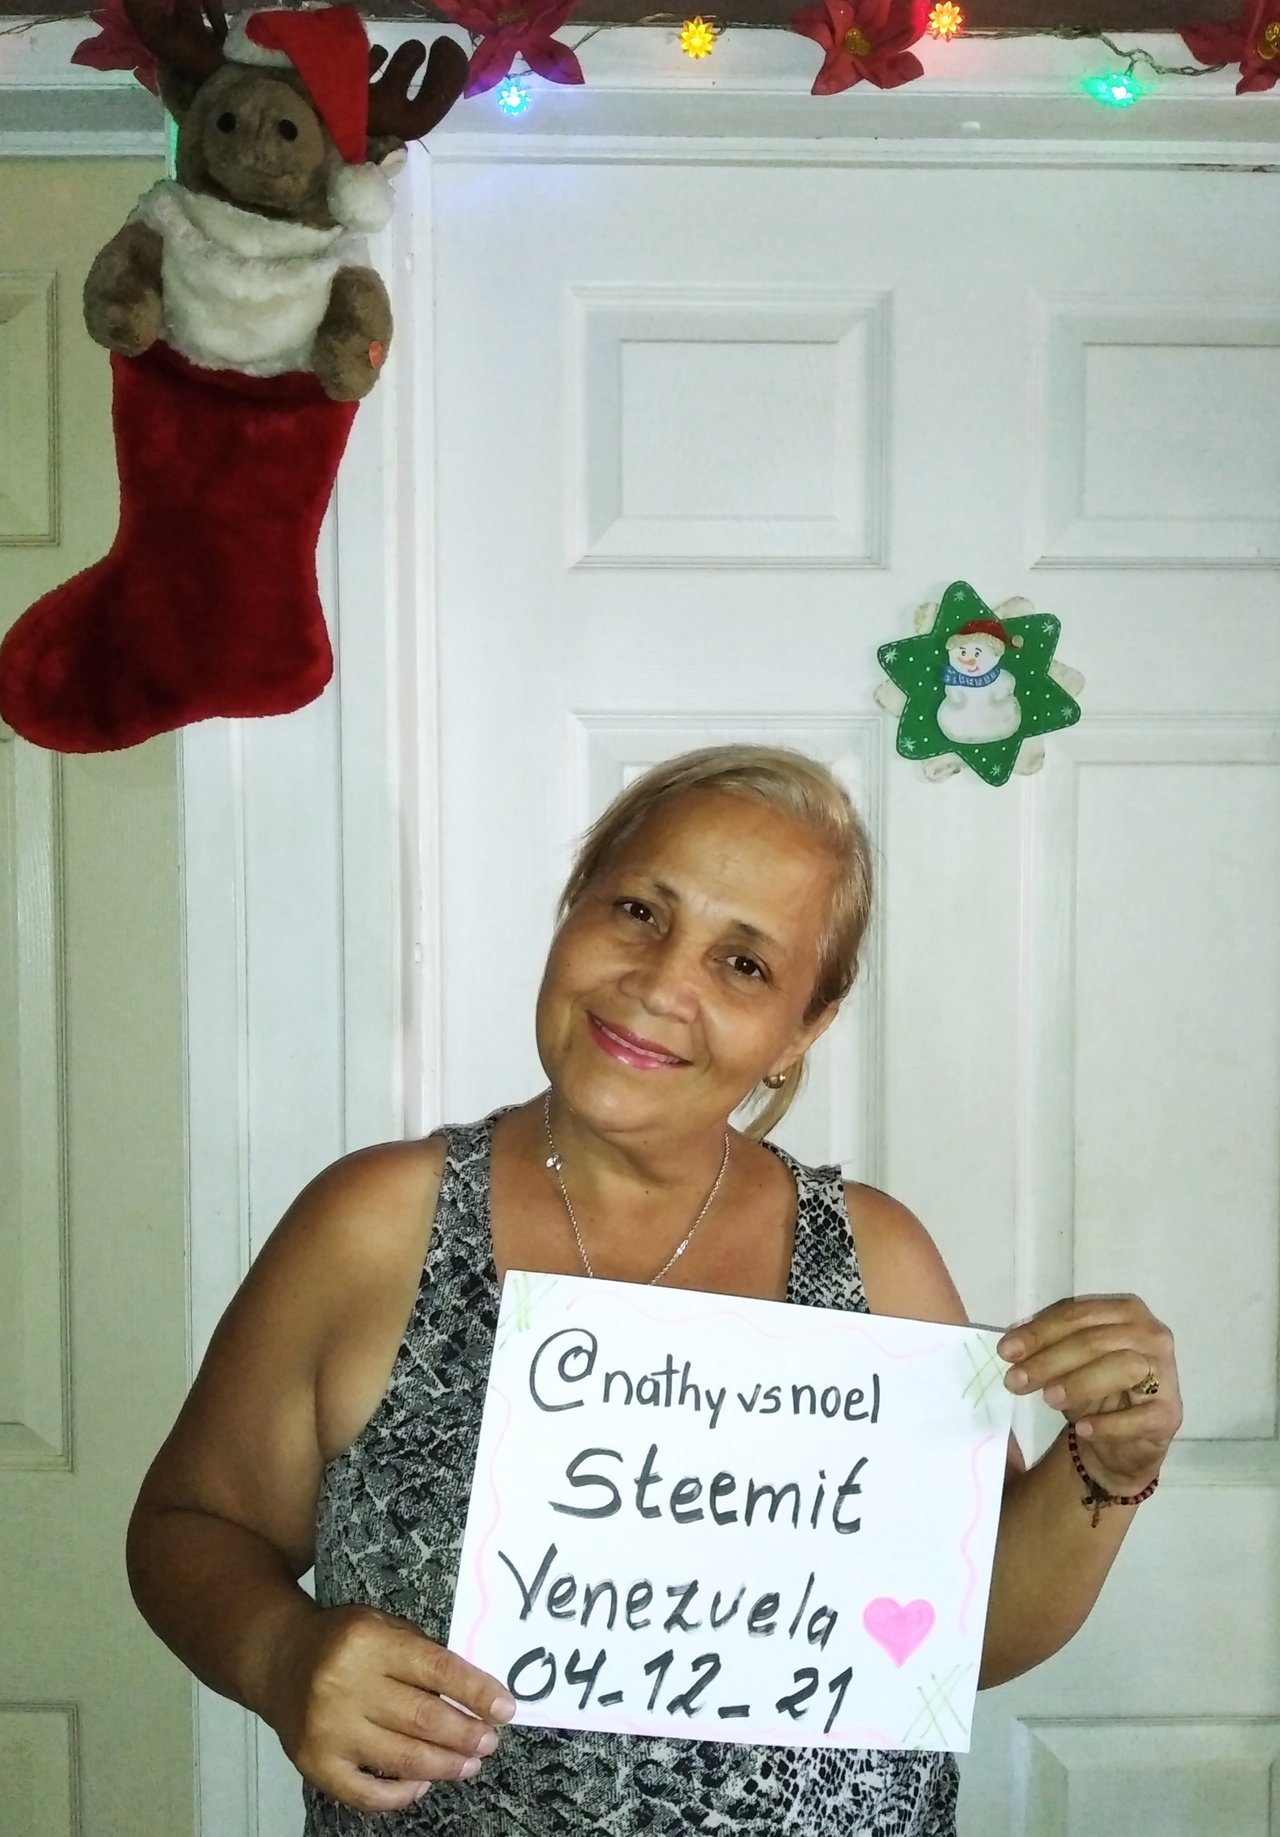 @nathyvsnoel
Steemit
Venezuela
04-12-21